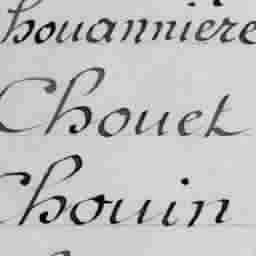 houannière
Chouet
Chouin